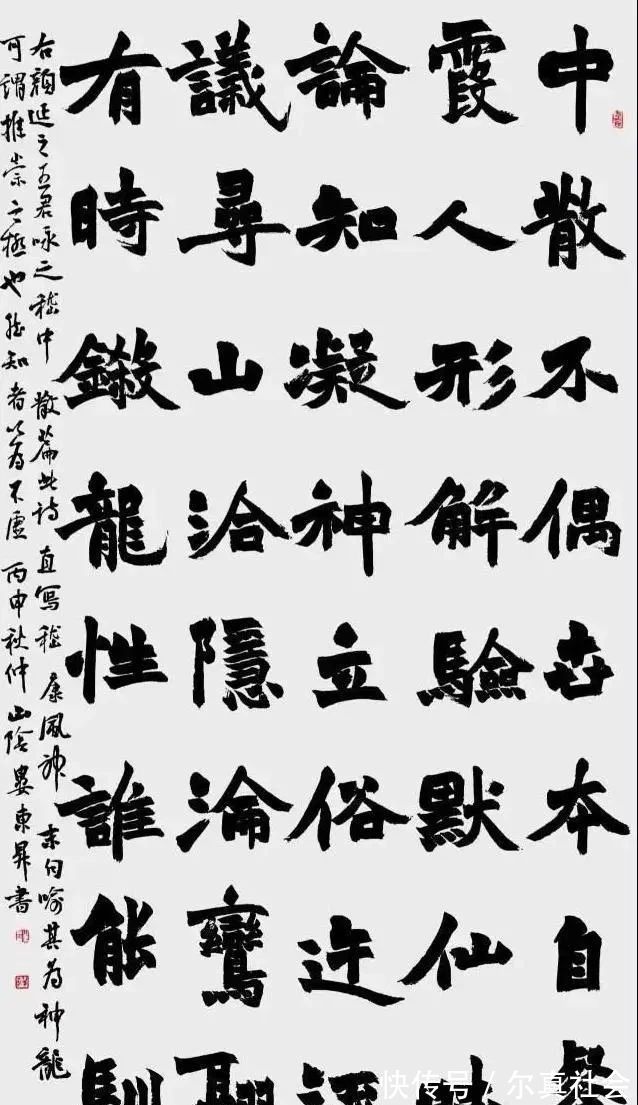 中散不偶世本自
霞人形解驗默仙
論知凝神立俗迕流
議尋山洽隱淪鸞翮
有時鎩龍性誰能馴
右顏延之五君咏之嵇中散篇此詩直寫嵇康風神末句喻其為神龍
可謂推崇之極也然知者以為不虛丙申秋仲山陰婁東昇書
快传号/尔真社会